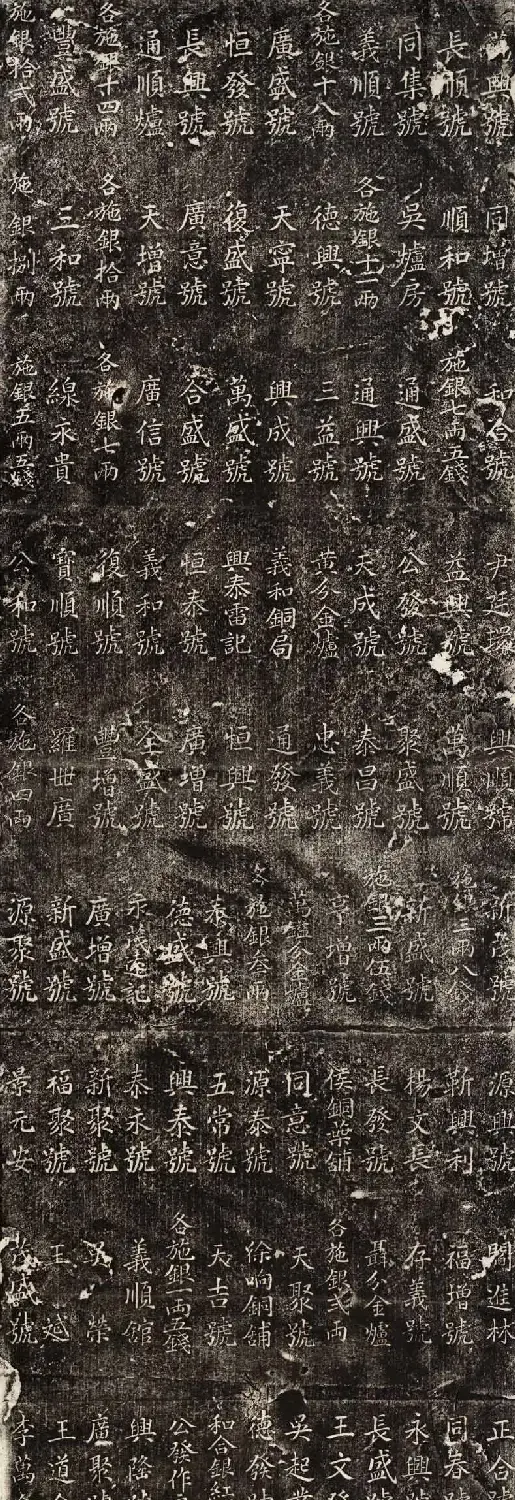 萬興號
長順號
同集號
義順號
各施銀十八兩
廣盛號
恒發號
長興號
通順爐
各施銀十四兩
豐盛號
施銀拾弍兩
同增號
順和號
吳爐房
各施銀十二兩
德興號
天寧號
復盛號
廣意號
天增號
各施銀拾兩
三和號
施銀捌兩
和合號
施銀七兩五錢
通盛號
通興號
三益號
興成號
萬盛號
合盛號
廣信號
各施銀七兩
線永貴
施銀五兩五錢
尹廷
益興號
公發號
天成號
黃分金爐
義和銅局
興泰雷記
恒泰號
義和號
復順號
寶順號
公和號
興順號
萬順號
聚盛號
泰昌號
忠義號
通發號
恒興號
廣增號
全盛號
豐增號
羅世廣
各施銀四兩
新茂號
施銀三兩八錢
新盛號
施銀三兩伍錢
亨增號
萬益分金爐
各施銀叁兩
泰興號
德盛號
永茂遠記
廣增號
新盛號
源聚號
源興號
靳興利
楊文長
長發號
侯銅葉舖
同意號
源泰號
五常號
興泰號
泰永號
新聚號
福聚號
景元安
閻進林
福增號
存義號
聶分金爐
各施銀弍兩
天聚號
徐响銅舖
天吉號
各施銀一兩五錢
義順館
吳榮
王斌
茂盛號
正合號
同春號
永興號
長盛號
王文發
吳起
德發號
和合銀紅
公發作
興隆
廣聚號
王道
李萬